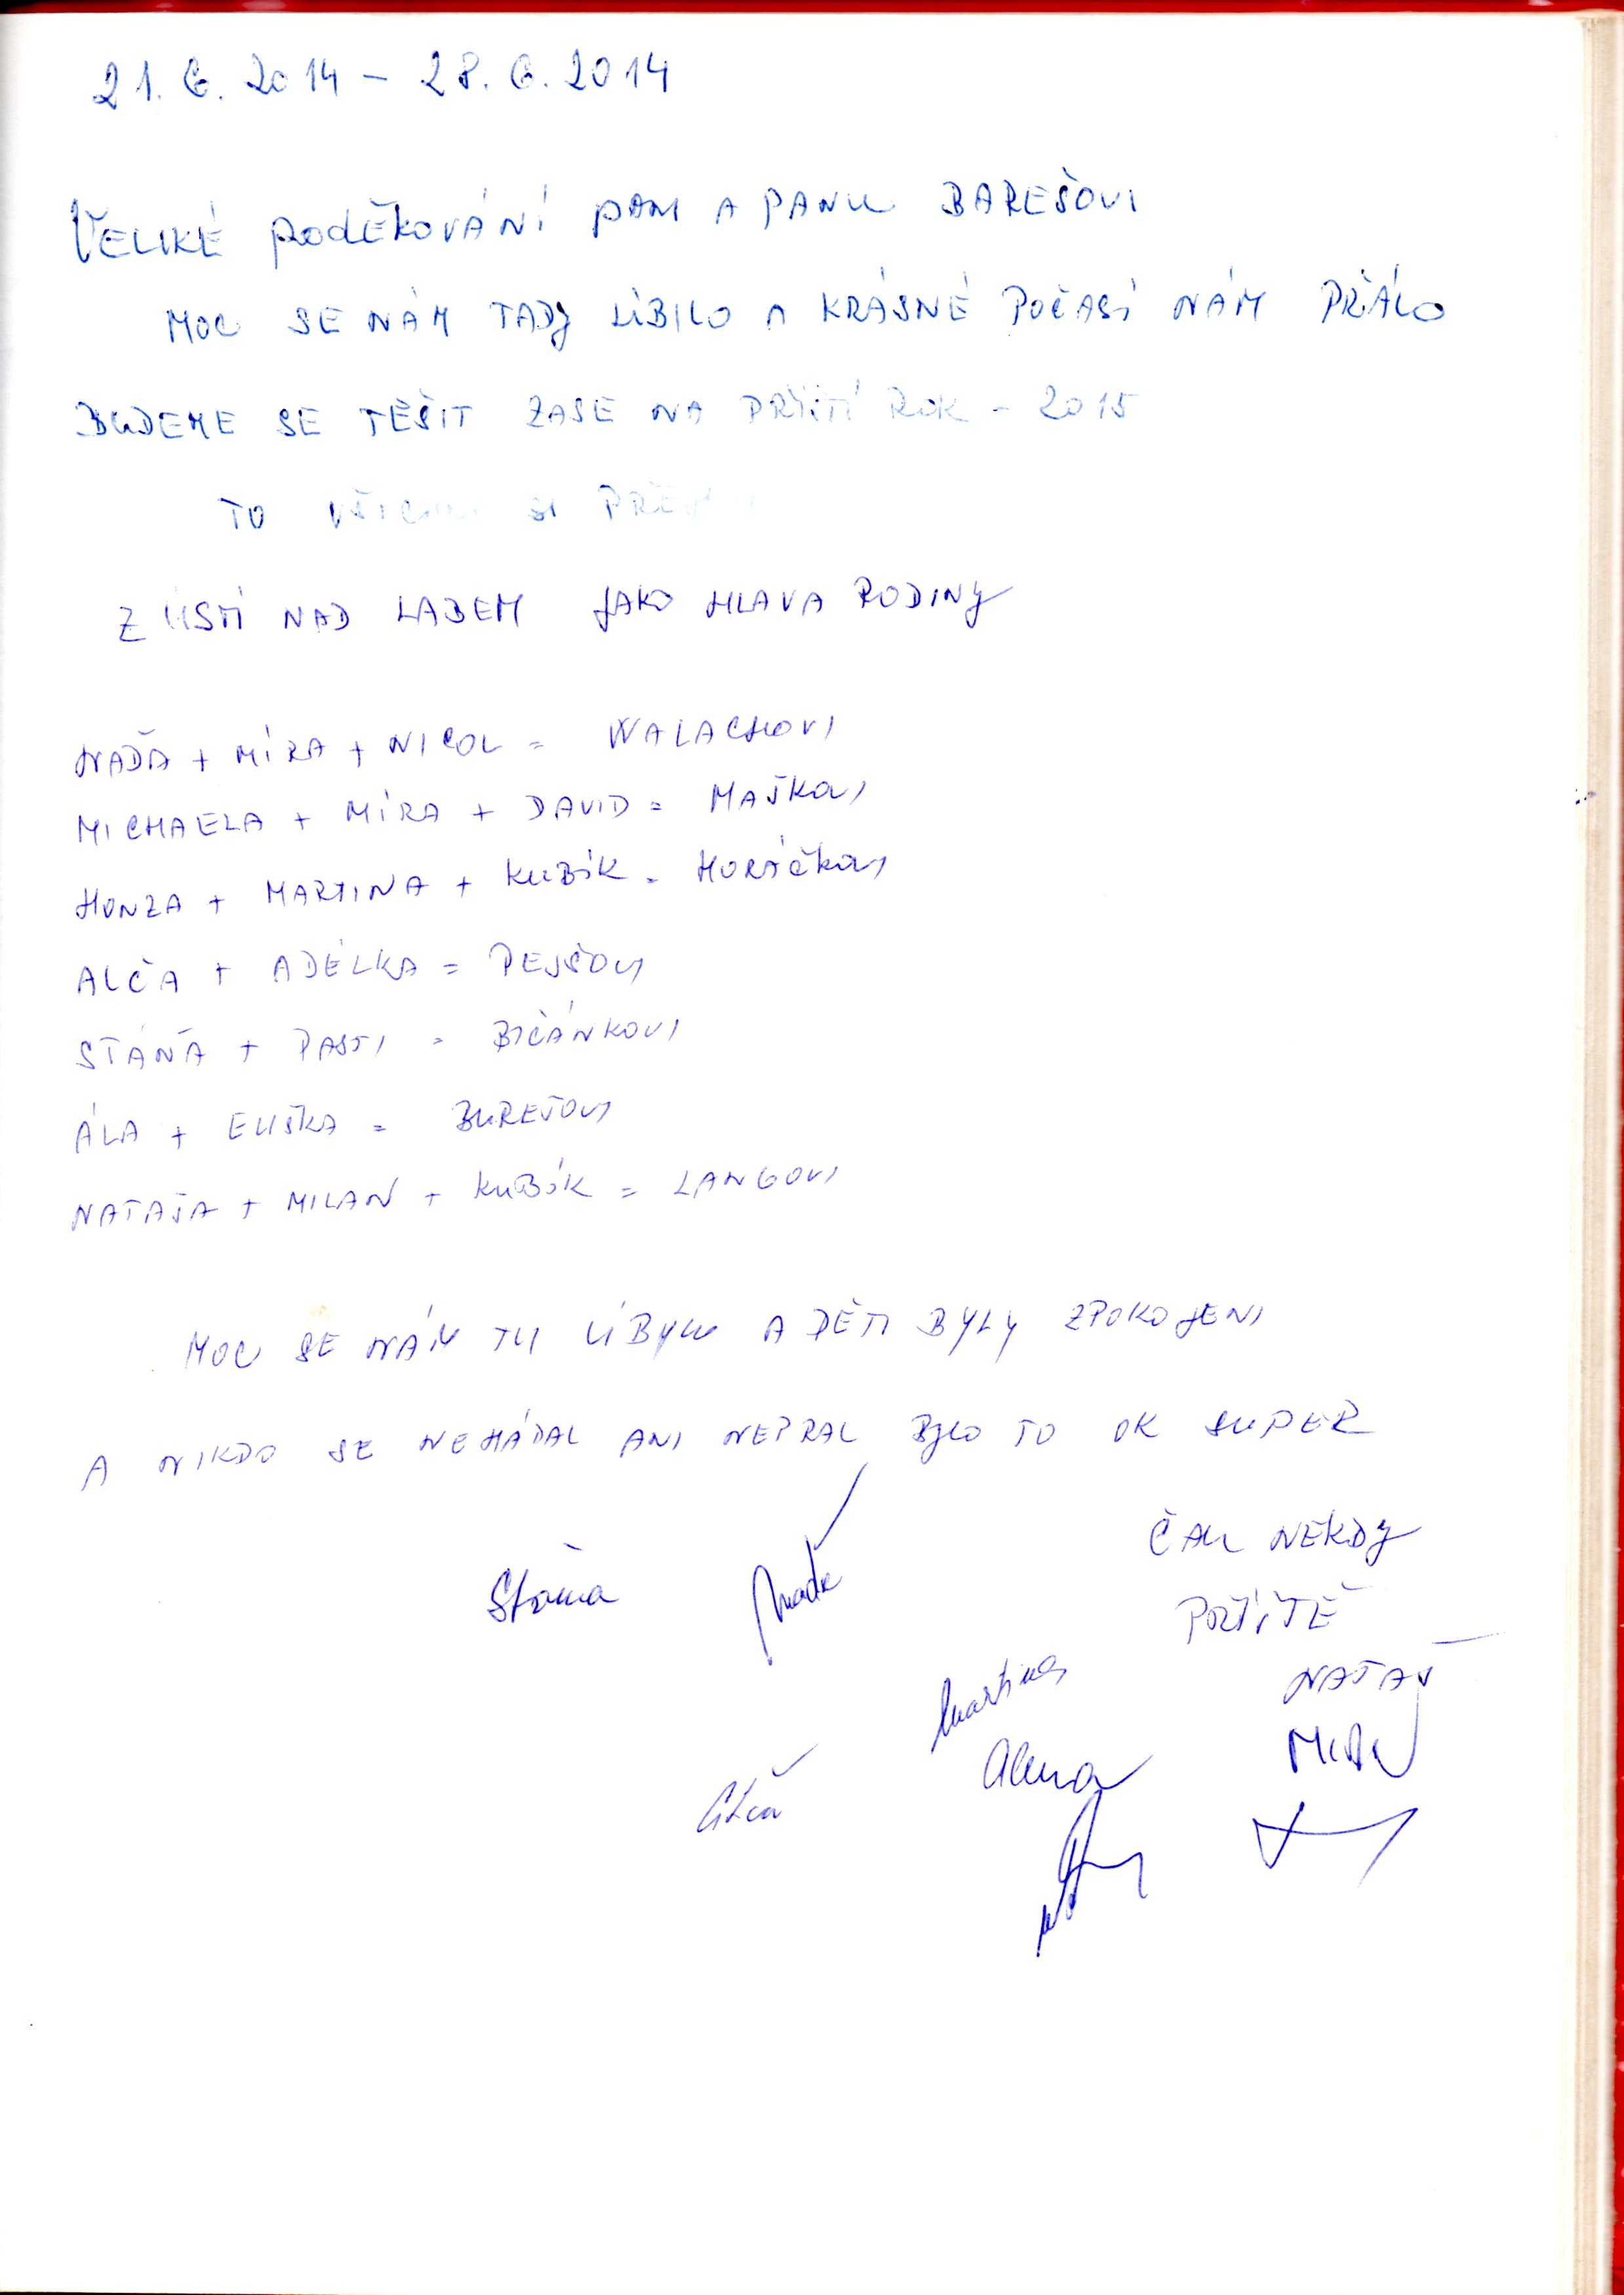 21. 6. 2014 - 28. 6. 2014
VELIKÉ PODĚKOVÁNÍ PANI A PANU BAREŠOVI
MOC SE NÁM TADY LÍBILO A KRÁSNÉ POČASÍ NÁM PŘÁLO
BUDEME SE TĚŠIT ZASE NA PŘÍŠTÍ ROK - 2015
TO VŠICHNI SI PŘEJEM
Z ÚSTÍ NAD LABEM JAKO HLAVA RODINY
NAĎA + MÍRA + NICOL = WALACHOVI
MICHAELA + MÍRA + DAVID = MAŠKOVI
HONZA + MARTINA + KUBÍK = HORÁČKOVI
ALČA + ADÉLKA = PEJŠOVI
STÁŇA + PASTI = BIČÁNKOVI
ÁLA + ELIŠKA = BUREŠOVI
NATAŠA + MILAN + KUBÍK = LANGOVI
MOC SE NÁM TU LÍBYLO A DĚTI BYLY ZPOKOJENI
A NIKDO SE NEHÁDAL ANI NEPRAL BYLO TO OK SUPER
ČAU NĚKDY
Stáňa Naďa
POZÍTĚ
Martina NATAŠ
Alena
Alča